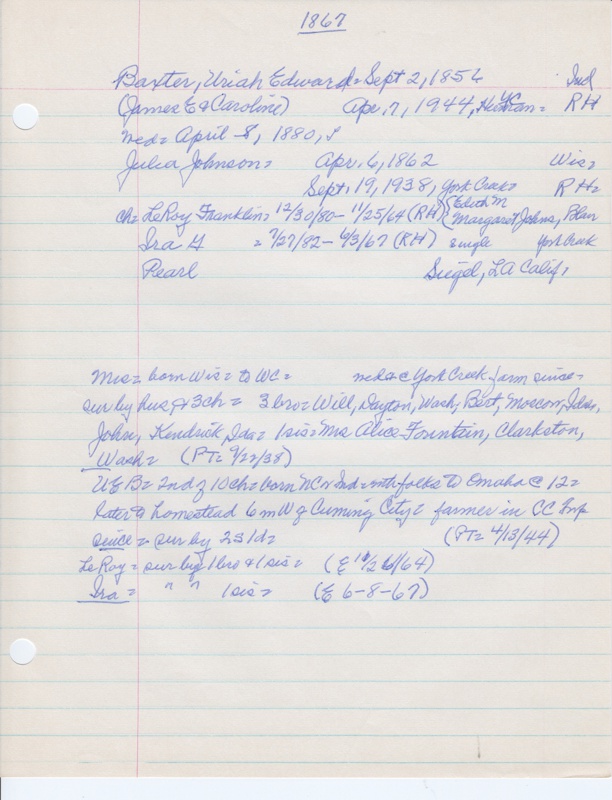 1867
Baxter, Uriah Edward = Sept 2, 1854 Ind
(James E & Caroline) Apr. 7, 1944, Herman = RH
WC
med = April 8, 1880,
Julia Johnson = Apr. 6, 1862 Wis =
Sept. 19, 1938, York Creek = RH =
ch = LeRoy Franklin = 12/30/80 - 11/25/64 (RH) { Edith M
Margaret Johns, Blair
Ira G = 7/27/82 - 6/3/67 (RH) single York Creek
Pearl Siegel, LA Calif,
Mrs = born Wis = to WC = York Creek farm since =
sur by hus & 3ch = 3 bro = Will, Dayton, Wash, Bert, Moscow, Idaho,
John, Kendrick, Ida = 1 sis = Mrs Alice Fountain, Clarkston,
Wash = (PT = 9/22/38)
UEB = 2nd of 10 ch = born NC Ind = with folks to Omaha @ 12 =
later to homestead 6 m W of Cuming City = farmer in CC
since = sur by 2s 1d = (PT = 4/13/44)
LeRoy = sur by 1 bro & 1 sis = (E 11/26/64)
Ira = " " 1 sis = (E 6-8-67)